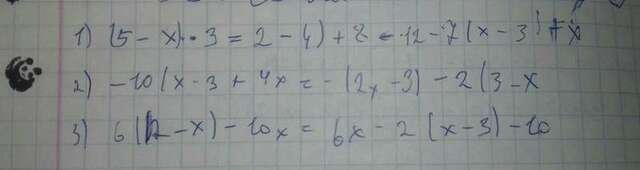 1) (5 - x) · 3 = 2 - 4) + 8 - 12 - 7 (x - 3) + x
2) - 10 (x - 3 + 4x = - (2x - 3) - 2 (3 - x
3) 6 (12 - x) - 10x = 6x - 2 (x - 3) - 10